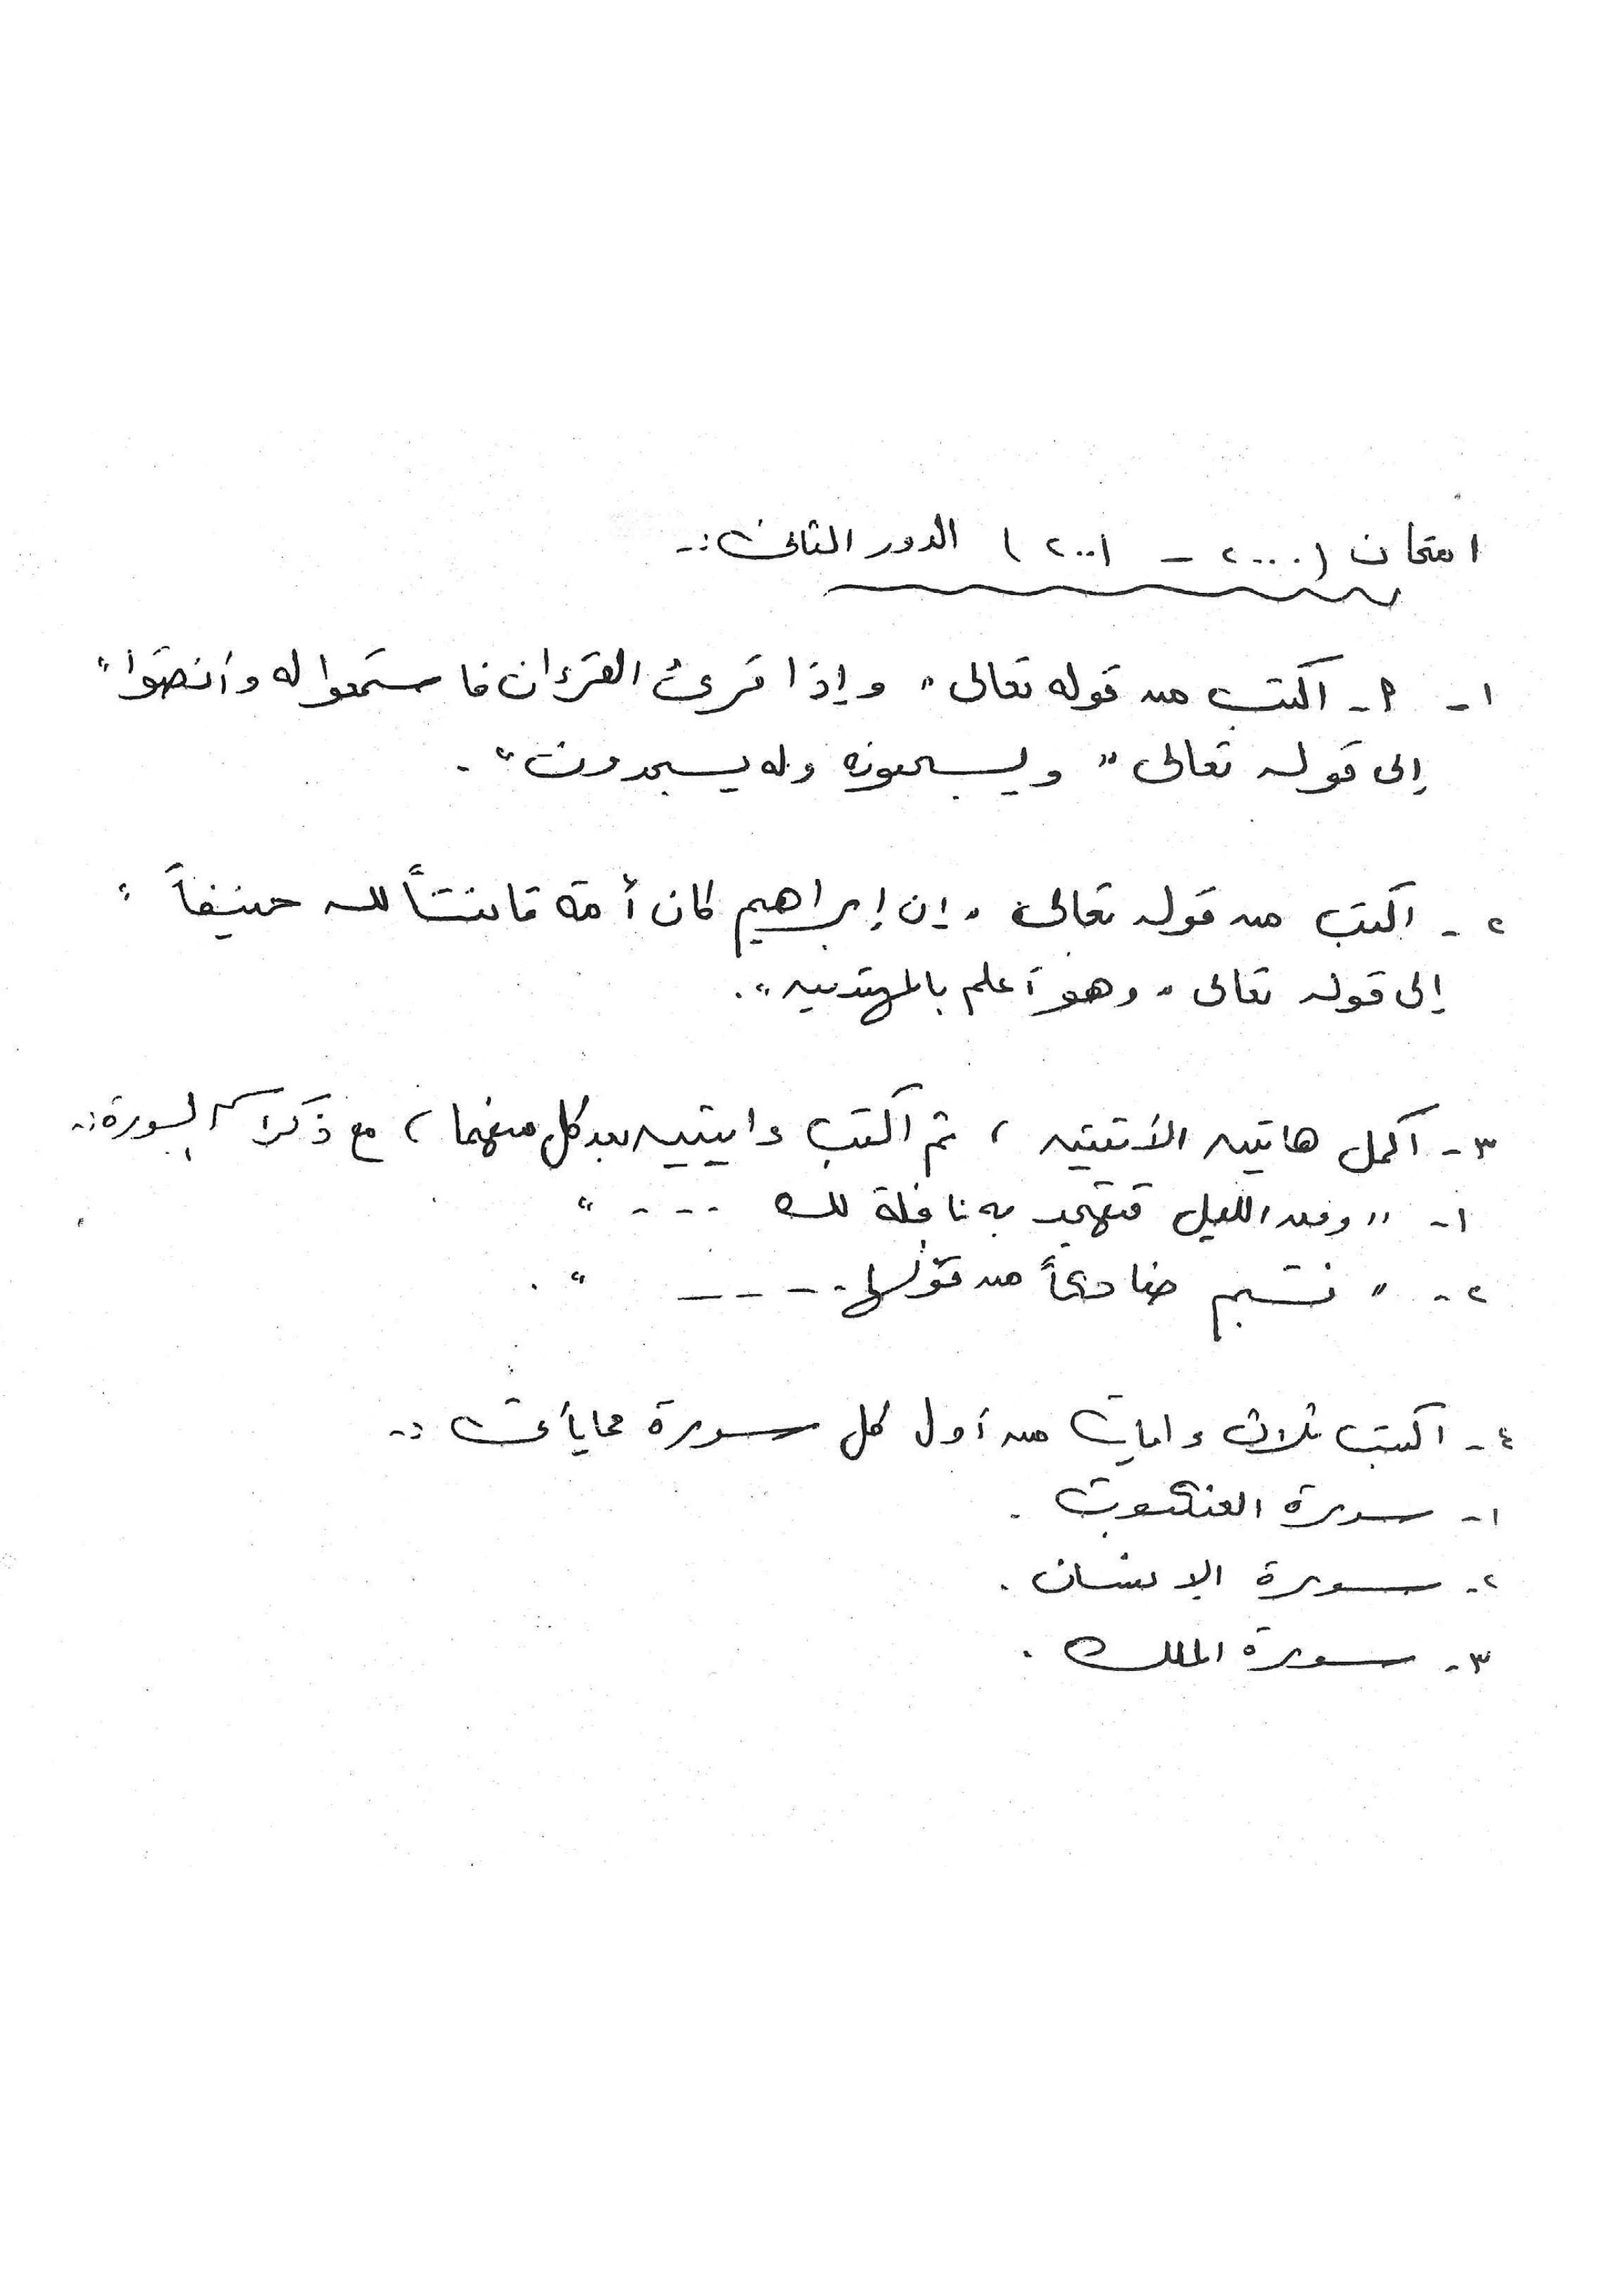 امتحان (٢٠٠٠ – ٢٠٠١) الدور الثاني :-
١- أ- اكتب من قوله تعالى " وإذا قرئ القرءان فاستمعوا له وأنصتوا "
إلى قوله تعالى " ويسبحونه وله يسجدون " .
٢- اكتب من قوله تعالى " إن إبراهيم كان أمة قانتاً لله حنيفاً "
إلى قوله تعالى " وهو أعلم بالمهتدين " .
٣- أكمل هاتين الآيتين ، ثم اكتب ءايتين بعد كل منهما ، مع ذكر اسم السورة :-
١- " ومن الليل فتهجد به نافلة لك - - - - "
٢- " فتبسم ضاحكاً من قولها - - - - - " .
٤- اكتب ثلاث ءايات من أول كل سورة مما يأتي :-
١- سورة العنكبوت .
٢- سورة الإنسان .
٣- سورة الملك .